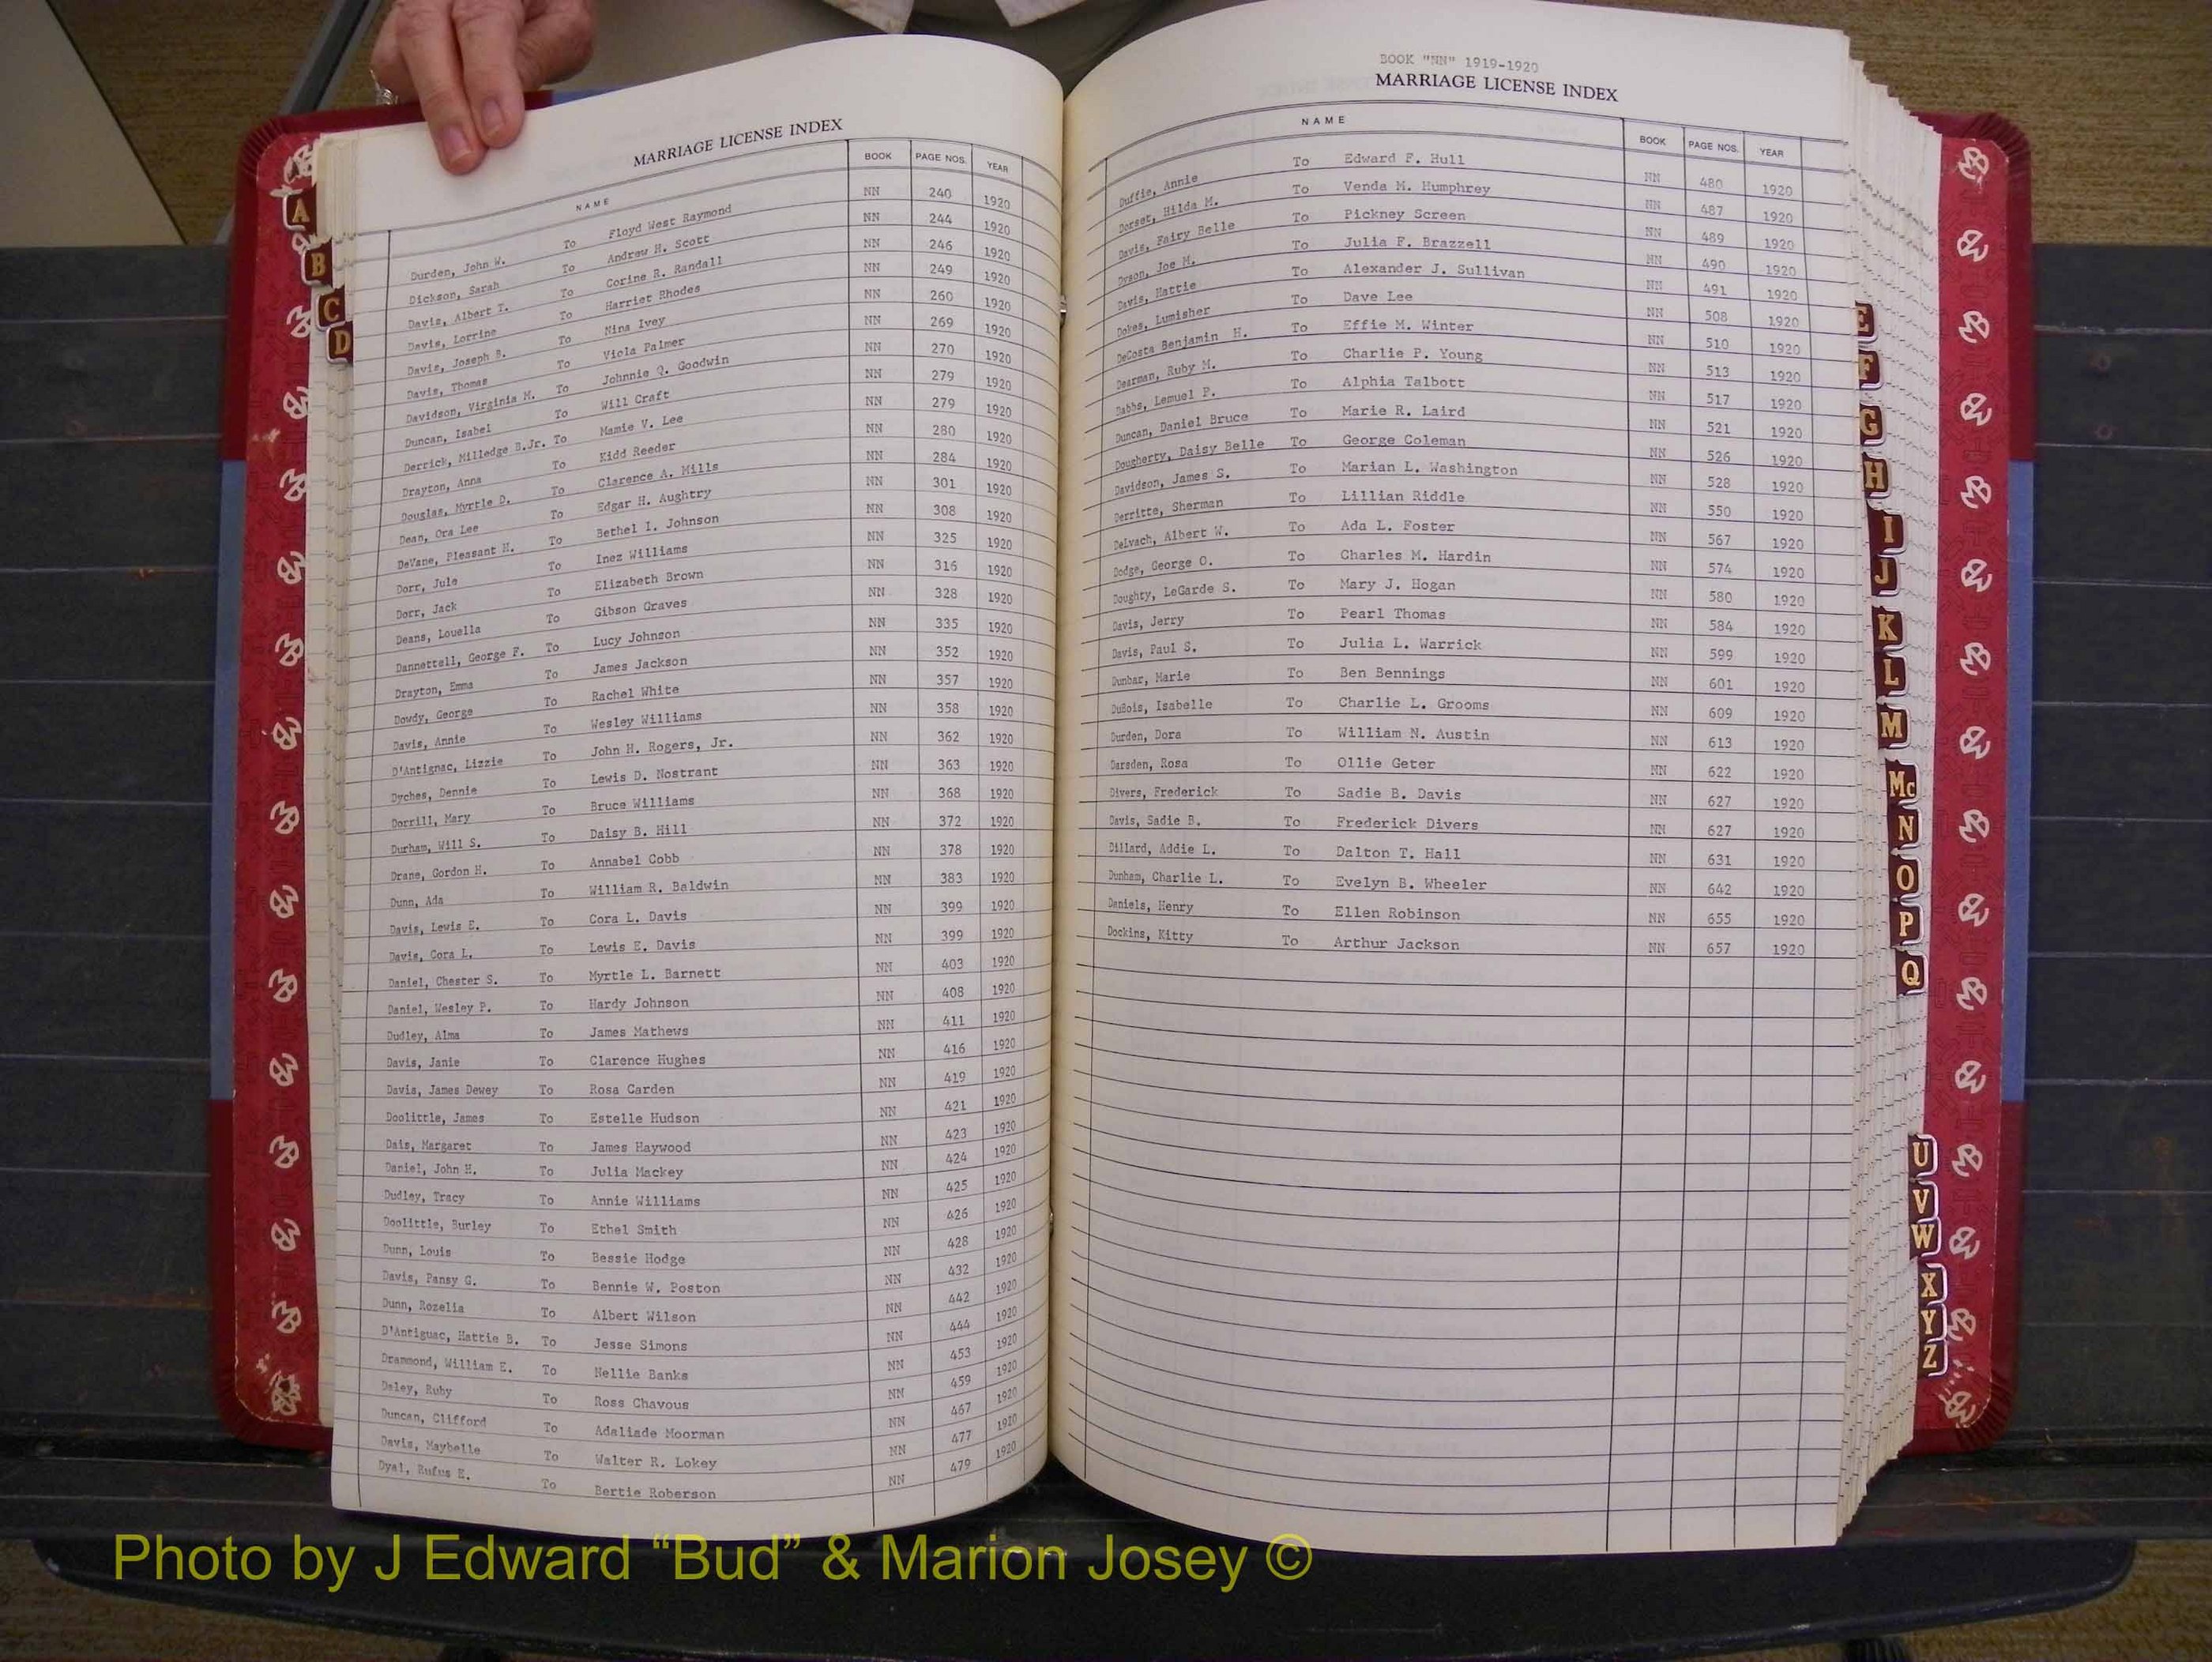 MARRIAGE LICENSE INDEX
NAME BOOK PAGE NOS. YEAR
Durden, John W. To Floyd West Raymond NN 240 1920
Dickson, Sarah To Andrew H. Scott NN 244 1920
Davis, Albert T. To Corine R. Randall NN 246 1920
Davis, Lorrine To Harriet Rhodes NN 249 1920
Davis, Joseph B. To Nina Ivey NN 260 1920
Davis, Thomas To Viola Palmer NN 269 1920
Davidson, Virginia M. To Johnnie Q. Goodwin NN 270 1920
Duncan, Isabel To Will Craft NN 279 1920
Derrick, Milledge B.Jr. To Mamie V. Lee NN 279 1920
Drayton, Anna To Kidd Reeder NN 280 1920
Douglas, Myrtle D. To Clarence A. Mills NN 284 1920
Dean, Ora Lee To Edgar H. Aughtry NN 301 1920
DeVane, Pleasant H. To Bethel I. Johnson NN 308 1920
Dorr, Jule To Inez Williams NN 325 1920
Dorr, Jack To Elizabeth Brown NN 316 1920
Deans, Louella To Gibson Graves NN 328 1920
Dannettell, George F. To Lucy Johnson NN 335 1920
Drayton, Emma To James Jackson NN 352 1920
Dowdy, George To Rachel White NN 357 1920
Davis, Annie To Wesley Williams NN 358 1920
D'Antignac, Lizzie To John H. Rogers, Jr. NN 362 1920
Dyches, Dennie To Lewis D. Nostrant NN 363 1920
Dorrill, Mary To Bruce Williams NN 368 1920
Durham, Will S. To Daisy B. Hill NN 372 1920
Drane, Gordon H. To Annabel Cobb NN 378 1920
Dunn, Ada To William R. Baldwin NN 383 1920
Davis, Lewis E. To Cora L. Davis NN 399 1920
Davis, Cora L. To Lewis E. Davis NN 399 1920
Daniel, Chester S. To Myrtle L. Barnett NN 403 1920
Daniel, Wesley P. To Hardy Johnson NN 408 1920
Dudley, Alma To James Mathews NN 411 1920
Davis, Janie To Clarence Hughes NN 416 1920
Davis, James Dewey To Rosa Carden NN 419 1920
Doolittle, James To Estelle Hudson NN 421 1920
Dais, Margaret To James Haywood NN 423 1920
Daniel, John H. To Julia Mackey NN 424 1920
Dudley, Tracy To Annie Williams NN 425 1920
Doolittle, Burley To Ethel Smith NN 426 1920
Dunn, Louis To Bessie Hodge NN 428 1920
Davis, Pansy G. To Bennie W. Poston NN 432 1920
Dunn, Rozelia To Albert Wilson NN 442 1920
D'Antiguac, Hattie B. To Jesse Simons NN 444 1920
Drammond, William E. To Nellie Banks NN 453 1920
Daley, Ruby To Ross Chavous NN 459 1920
Duncan, Clifford To Adaliade Moorman NN 467 1920
Davis, Maybelle To Walter R. Lokey NN 477 1920
Dyal, Rufus E. To Bertie Roberson NN 479 1920
BOOK "NN" 1919-1920
MARRIAGE LICENSE INDEX
NAME BOOK PAGE NOS. YEAR
Duffie, Annie To Edward F. Hull NN 480 1920
Dorset, Hilda M. To Venda M. Humphrey NN 487 1920
Davis, Fairy Belle To Pickney Screen NN 489 1920
Dyson, Joe M. To Julia F. Brazzell NN 490 1920
Davis, Hattie To Alexander J. Sullivan NN 491 1920
Dokes, Lumisher To Dave Lee NN 508 1920
DeCosta Benjamin H. To Effie M. Winter NN 510 1920
Dearman, Ruby M. To Charlie P. Young NN 513 1920
Dabbs, Lemuel P. To Alphia Talbott NN 517 1920
Duncan, Daniel Bruce To Marie R. Laird NN 521 1920
Dougherty, Daisy Belle To George Coleman NN 526 1920
Davidson, James S. To Marian L. Washington NN 528 1920
Derritte, Sherman To Lillian Riddle NN 550 1920
DeLvach, Albert W. To Ada L. Foster NN 567 1920
Dodge, George O. To Charles M. Hardin NN 574 1920
Doughty, LeGarde S. To Mary J. Hogan NN 580 1920
Davis, Jerry To Pearl Thomas NN 584 1920
Davis, Paul S. To Julia L. Warrick NN 599 1920
Dunbar, Marie To Ben Bennings NN 601 1920
DuBois, Isabelle To Charlie L. Grooms NN 609 1920
Durden, Dora To William N. Austin NN 613 1920
Darsden, Rosa To Ollie Geter NN 622 1920
Divers, Frederick To Sadie B. Davis NN 627 1920
Davis, Sadie B. To Frederick Divers NN 627 1920
Dillard, Addie L. To Dalton T. Hall NN 631 1920
Dunham, Charlie L. To Evelyn B. Wheeler NN 642 1920
Daniels, Henry To Ellen Robinson NN 655 1920
Dockins, Kitty To Arthur Jackson NN 657 1920
A
B
C
D
E
F
G
H
I
J
K
L
M
Mc
N
O
P
Q
U
V
W
X
Y
Z
Photo by J Edward “Bud” & Marion Josey ©